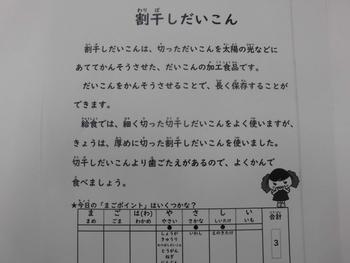 割干しだいこん
割干しだいこんは、切っただいこんを太陽の光などに
あててかんそうさせた、だいこんの加工食品です。
だいこんをかんそうさせることで、長く保存することが
できます。
給食では、細く切った切干しだいこんをよく使いますが、
きょうは、厚めに切った割干しだいこんを使いました。
切干しだいこんより歯ごたえがあるので、よくかんで
食べましょう。
★今日の「まごポイント」はいくつかな？
ま ご は(わ) や さ し い 合計
まめ ごま わかめ やさい さかな しいたけ いも
● ● ●
しょうが いわし えのきたけ 3
きゅうり
とうがん
ねぎ